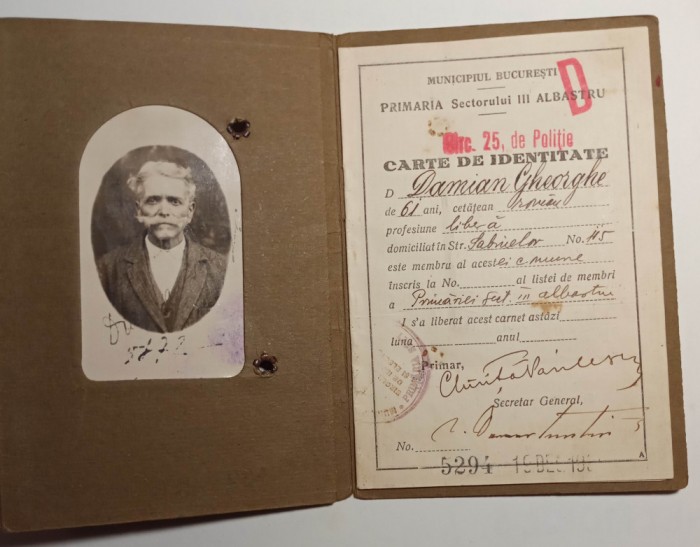 5272
MUNICIPIUL BUCUREȘTI
D
PRIMARIA Sectorului III ALBASTRU
Circ. 25, de Poliție
CARTE DE IDENTITATE
D Damian Gheorghe
de 61 ani, cetățean român
profesiune liberă
domiciliat în Str. Sabiuelor No. 45
este membru al acestei comune
înscris la No. al listei de membri
a Primăriei Sect. III albastru
I s'a liberat acest carnet astăzi
luna anul
Primar,
Secretar General,
No.
5294 15 DEC 19
A